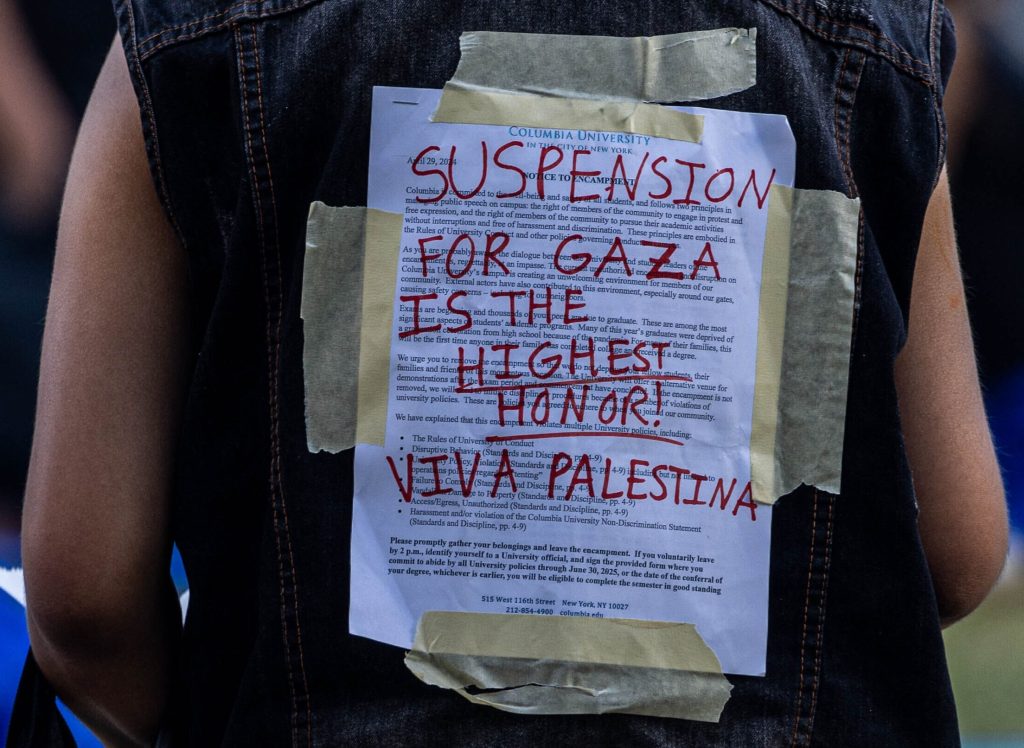 COLUMBIA UNIVERSITY
IN THE CITY OF NEW YORK
SUSPENSION
FOR GAZA
IS THE
HIGHEST
HONOR!
VIVA PALESTINA
April 29,
NOTICE TO ENCAMPMENT
Columbia is committed to the well-being and safety of all students, and follows two principles in
public speech on campus: the right of members of the community to engage in protest and
free expression, and the right of members of the community to pursue their academic activities
without interruptions and free of harassment and discrimination. These principles are embodied in
the Rules of University Conduct and other policies governing
As you are probably aware, the dialogue between the University and student leaders of the
an impasse. The unauthorized disruption on
Columbia University's campus is creating an unwelcoming environment for members of our
community. External actors have also contributed to this environment, especially around our gates,
causing safety concerns – including for our neighbors.
Exams are beginning and thousands of you are due to graduate. These are among the most
significant aspects of students' academic programs. Many of this year's graduates were deprived of
a graduation celebration from high school because of the pandemic. For many of their families, this
will be the first time anyone in their families has completed college and received a degree.
We urge you to remove the encampment so that we do not deprive your fellow students, their
families and friends of this momentous occasion. The University will offer an alternative venue for
demonstrations after the exam period and Commencement have concluded. If the encampment is not
removed, we will initiate disciplinary procedures because of a number of violations of
university policies. These are policies you agreed to adhere to when you joined our community.
We have explained that this encampment violates multiple University policies, including:
• The Rules of University Conduct
• Disruptive Behavior (Standards and Discipline, pp. 4-9)
• University Policy, Violation (Standards and Discipline, pp. 4-9) including but not limited to
operations policies regarding "tenting"
• Failure to Comply (Standards and Discipline, pp. 4-9)
• Vandalism/Damage to Property (Standards and Discipline, pp. 4-9)
• Access/Egress, Unauthorized (Standards and Discipline, pp. 4-9)
• Harassment and/or violation of the Columbia University Non-Discrimination Statement
(Standards and Discipline, pp. 4-9)
Please promptly gather your belongings and leave the encampment. If you voluntarily leave
by 2 p.m., identify yourself to a University official, and sign the provided form where you
commit to abide by all University policies through June 30, 2025, or the date of the conferral of
your degree, whichever is earlier, you will be eligible to complete the semester in good standing
515 West 116th Street New York, NY 10027
212-854-4900 columbia.edu